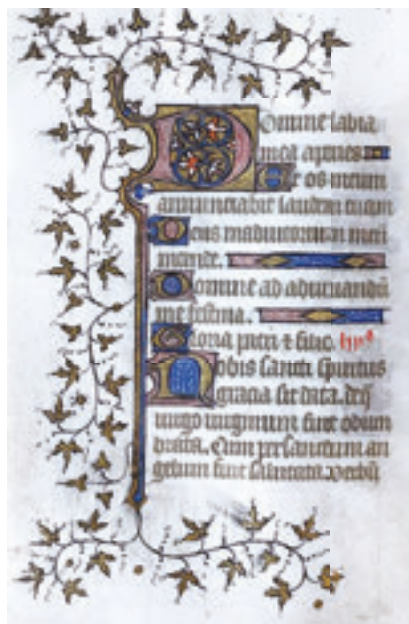 Domine labia
mea apries
Et os meum
annunciabit laudem tuam
Deus in adiutorium meū
intende.
Domine ad adiuuandū
me festina.
Gloria patri & filio.
Nobis sancti spiritus
gracia sit data. de q̄
uirgo uirginum fuit obum
brata. Cum per sanctum an
gelum fuit salutata. verbū